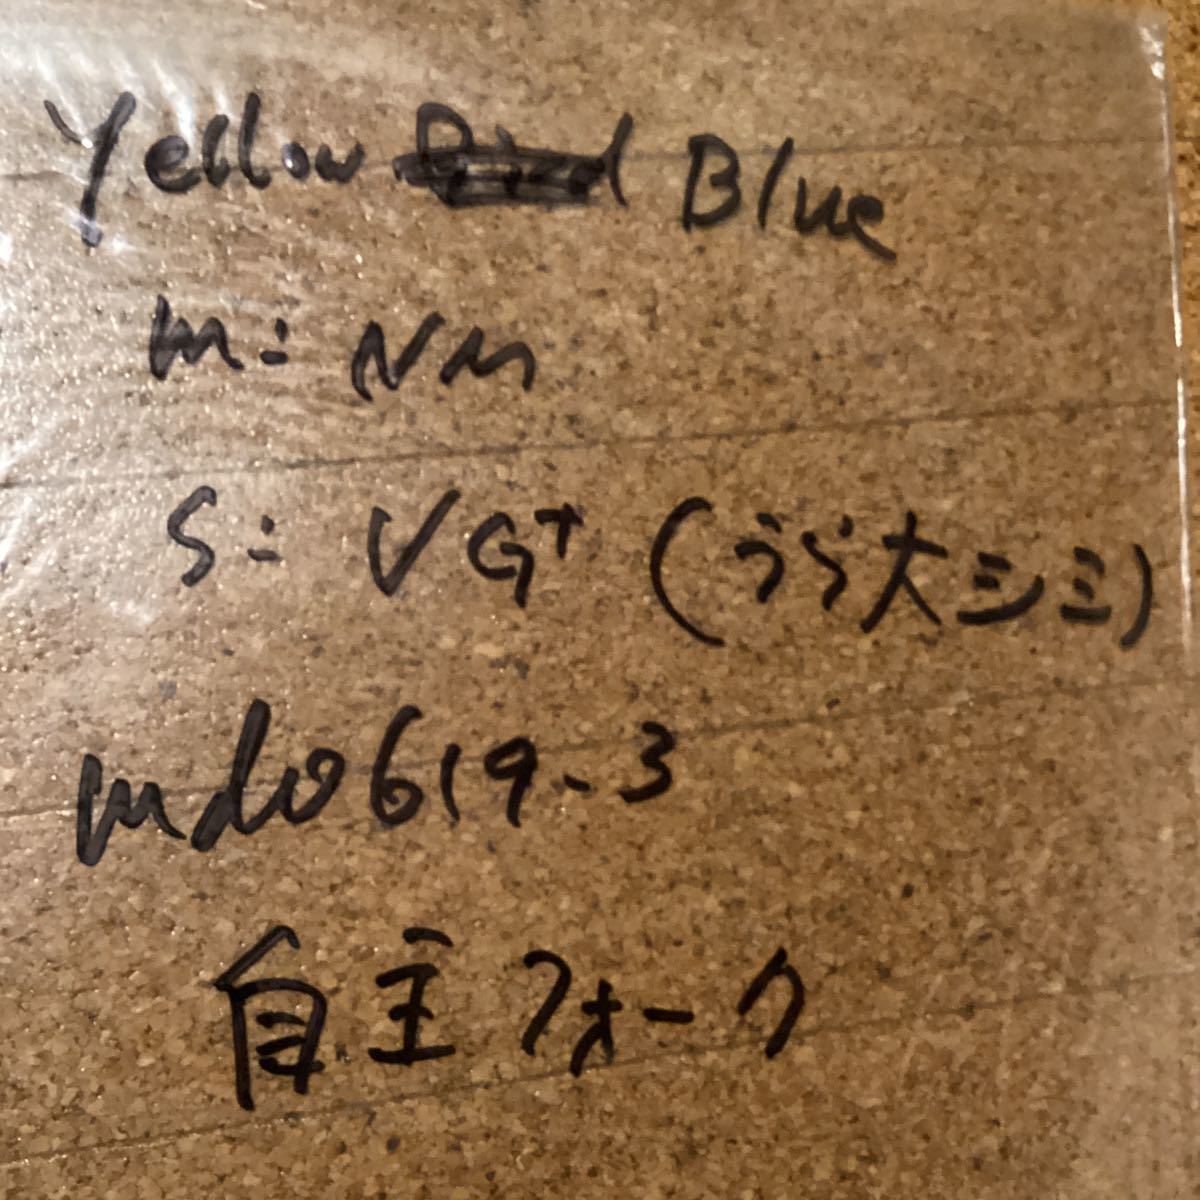 Yellow Blue
m: NM
S: VG+ (うら大シミ)
md0619-3
自主フォーク